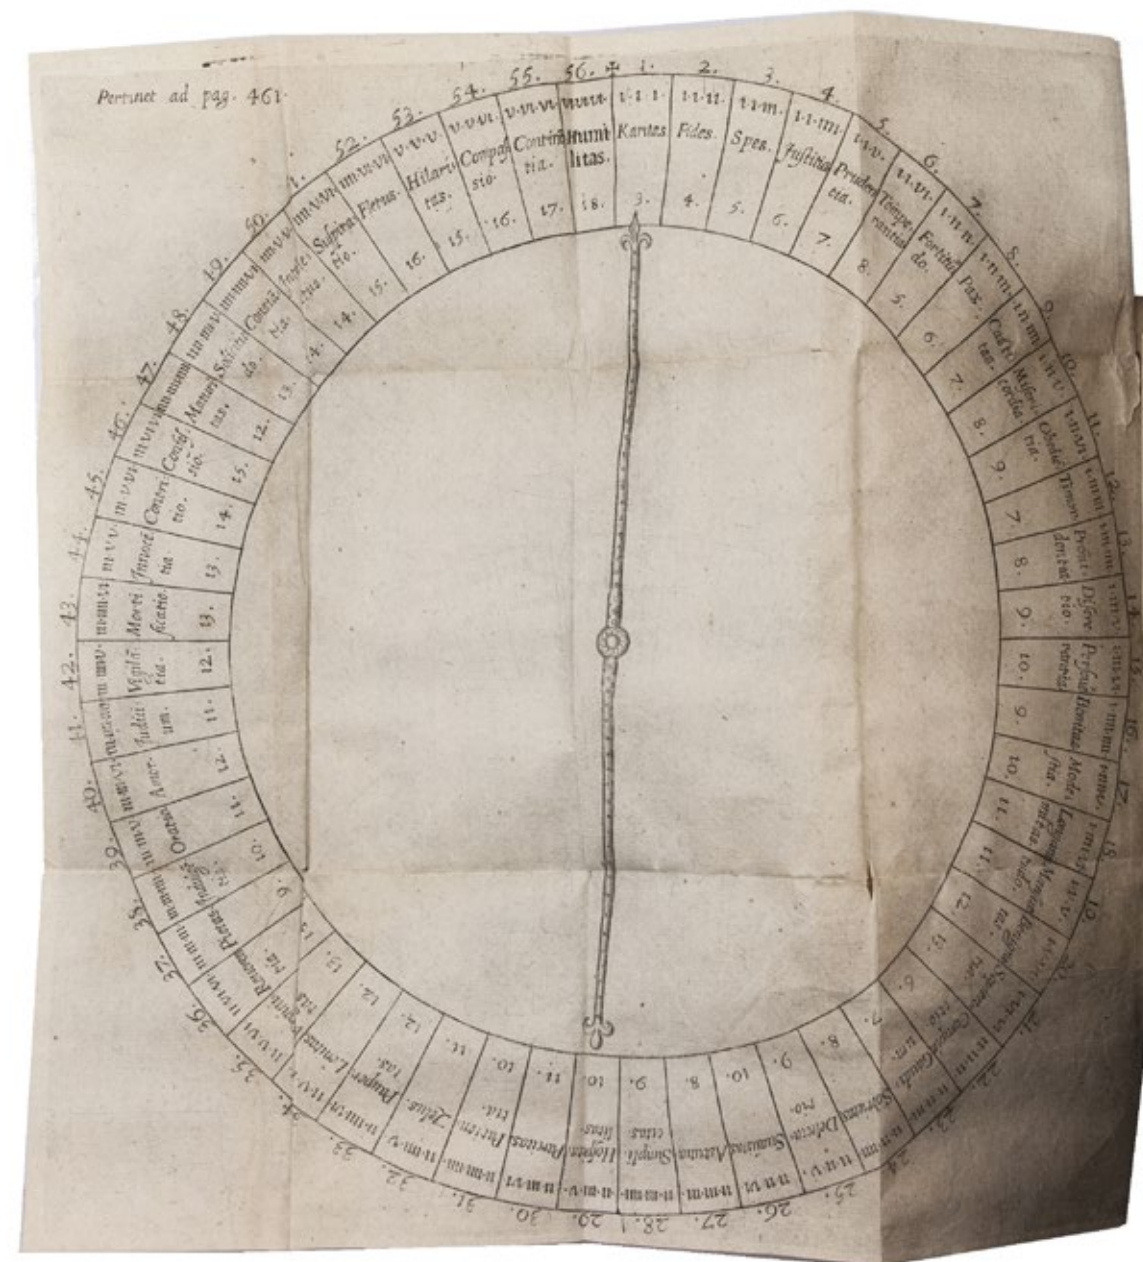 Pertinet ad pag. 461.
1.
I·I·I
Karitas
3.
2.
I·I·II·
Fides.
4.
3.
I·I·III·
Spes.
5.
4.
I·I·IIII
Justitia
6.
5.
I·I·V·
Pruden
tia.
7.
6.
I·I·VI·
Tempe
rantia
8.
7.
I·II·II·
Fortitu
do.
5.
8.
I·II·III·
Pax.
6.
9.
I·II·IIII
Casti
tas.
7.
10.
I·II·V
Miseri
cordia
8.
11.
I·II·VI·
Obediē
tia.
9.
12.
I·III·III
Timor.
7.
13.
I·III·IIII
Provi
dentia
8.
14.
I·III·V
Discre
tio.
9.
15.
I·III·VI
10.
16.
I·IIII·IIII
Bonitas
9.
17.
I·IIII·V·
Modes
tia.
10.
18.
I·IIII·VI
11.
19.
I·V·V·
11.
20.
12.
21.
I·VI·VI
13.
22.
II·II·II
6.
23.
7.
24.
II·II·IIII
Sobrietas
8.
25.
II·II·V·
9.
26.
II·II·VI
Suavitas
10.
27.
II·III·III
Astutia
8.
28.
II·III·IIII
Simpli
citas
9.
29.
II·III·V·
Hospita
litas.
10.
30.
II·III·VI
Parcitas.
11.
31.
II·IIII·IIII
Patien
tia.
10.
32.
II·IIII·V
Zelus.
11.
33.
II·IIII·VI
Pauper
tas.
12.
34.
II·V·V·
Lenitas.
12.
35.
II·V·VI
13.
36.
II·VI·VI
37.
III·III·III
Pietas.
9.
38.
III·III·IIII
10.
39.
III·III·V
Oratio
11.
40.
III·III·VI
Amor.
12.
41.
III·IIII·IIII
Judici
um.
11.
42.
III·IIII·V·
Vigilā
tia.
12.
43.
III·IIII·VI
Morti
ficatio.
13.
44.
III·V·V·
Innocē
tia
13.
45.
III·V·VI
Contri
tio.
14.
46.
III·VI·VI
Confes
sio.
15.
47.
IIII·IIII·IIII
Maturi
tas.
12.
48.
IIII·IIII·V
Solicitu
do.
13.
49.
IIII·IIII·VI
14.
50.
IIII·V·V
14.
IIII·V·VI
Suspira
tio.
15.
52.
IIII·VI·VI
Fletus.
16.
53.
V·V·V·
Hilari
tas.
15.
54.
V·V·VI·
Compas
sio.
16.
55.
V·VI·VI·
Continē
tia.
17.
56.
VI·VI·VI·
Humi
litas.
18.